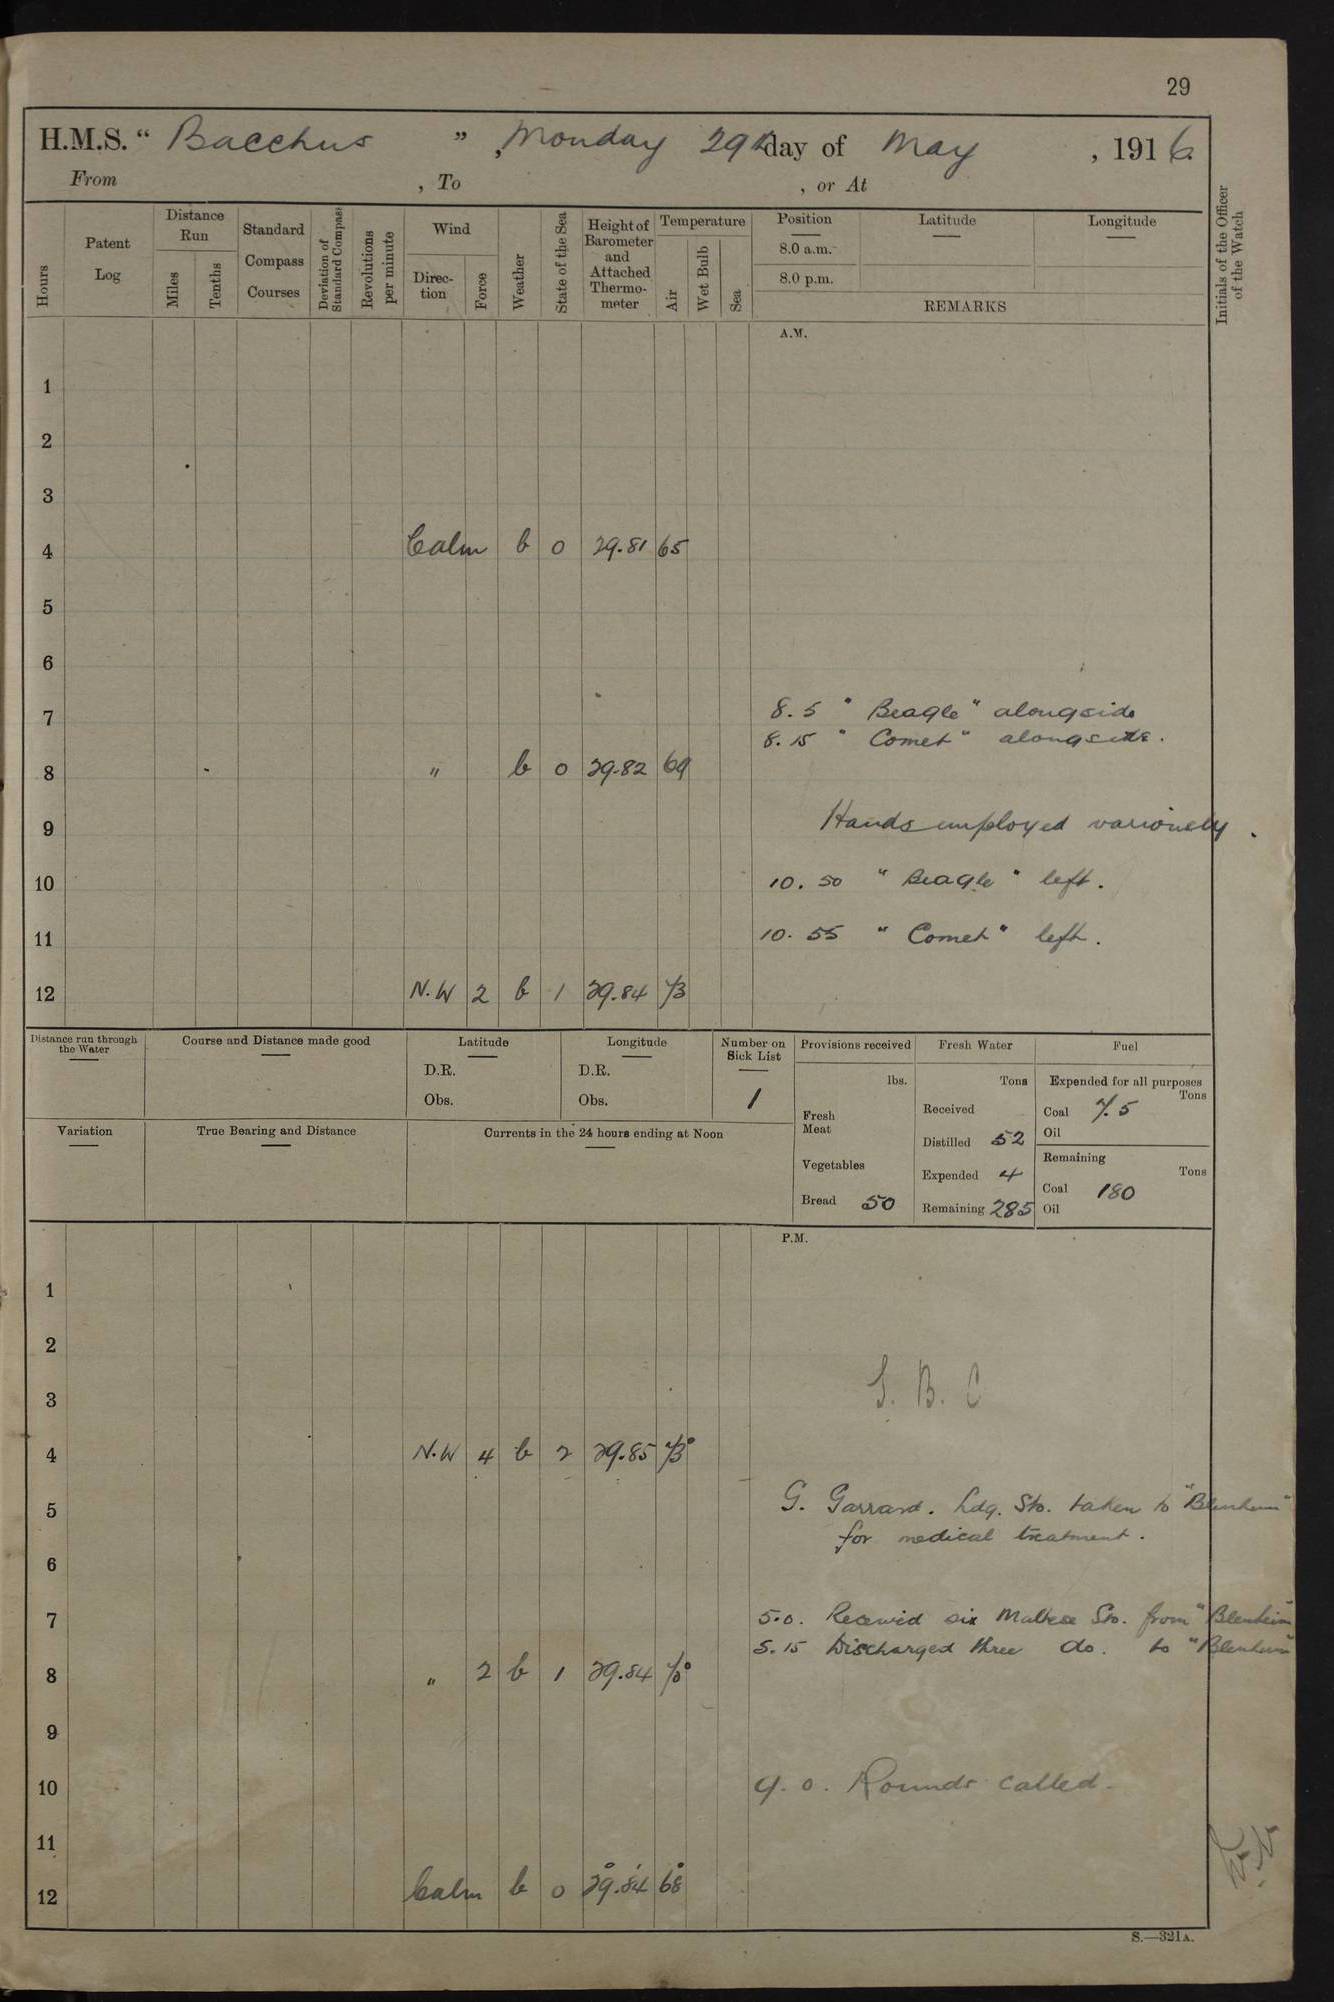 29
H.M.S. “ Bacchus ” , Monday 29th day of May , 1916.
From , To , or At
Hours
Patent Log
Distance Run
Miles
Tenths
Standard Compass Courses
Deviation of Standard Compass
Revolutions per minute
Wind
Direction
Force
Weather
State of the Sea
Height of Barometer and Attached Thermometer
Temperature
Air
Wet Bulb
Sea
Position Latitude Longitude
8.0 a.m.
8.0 p.m.
REMARKS
Initials of the Officer of the Watch
A.M.
1
2
3
4 Calm b 0 29.81 65
5
6
7 8.5 "Beagle" alongside
8.15 "Comet" alongside.
8 " b 0 29.82 69
9 Hands employed variously.
10 10.50 "Beagle" left.
11 10.55 "Comet" left.
12 N.W 2 b 1 29.84 73
Distance run through the Water
Course and Distance made good
Latitude
D.R.
Obs.
Longitude
D.R.
Obs.
Number on Sick List
1
Variation
True Bearing and Distance
Currents in the 24 hours ending at Noon
Provisions received
lbs.
Fresh Meat
Vegetables
Bread 50
Fresh Water
Tons
Received
Distilled 52
Expended 4
Remaining 285
Fuel
Expended for all purposes
Tons
Coal 7.5
Oil
Remaining
Tons
Coal 180
Oil
P.M.
1
2
3 S. B. C
4 N.W 4 b 2 29.85 73°
5 G. Garrard. Ldg. Sto. taken to "Blenheim"
for medical treatment.
6
7 5.0. Received six Maltese Sto. from "Blenheim"
5.15 Discharged three do. to "Blenheim"
8 " 2 b 1 29.84 70°
9
10 9.0. Rounds called.
11
12 Calm b 0 29.84 68
S.—321A.